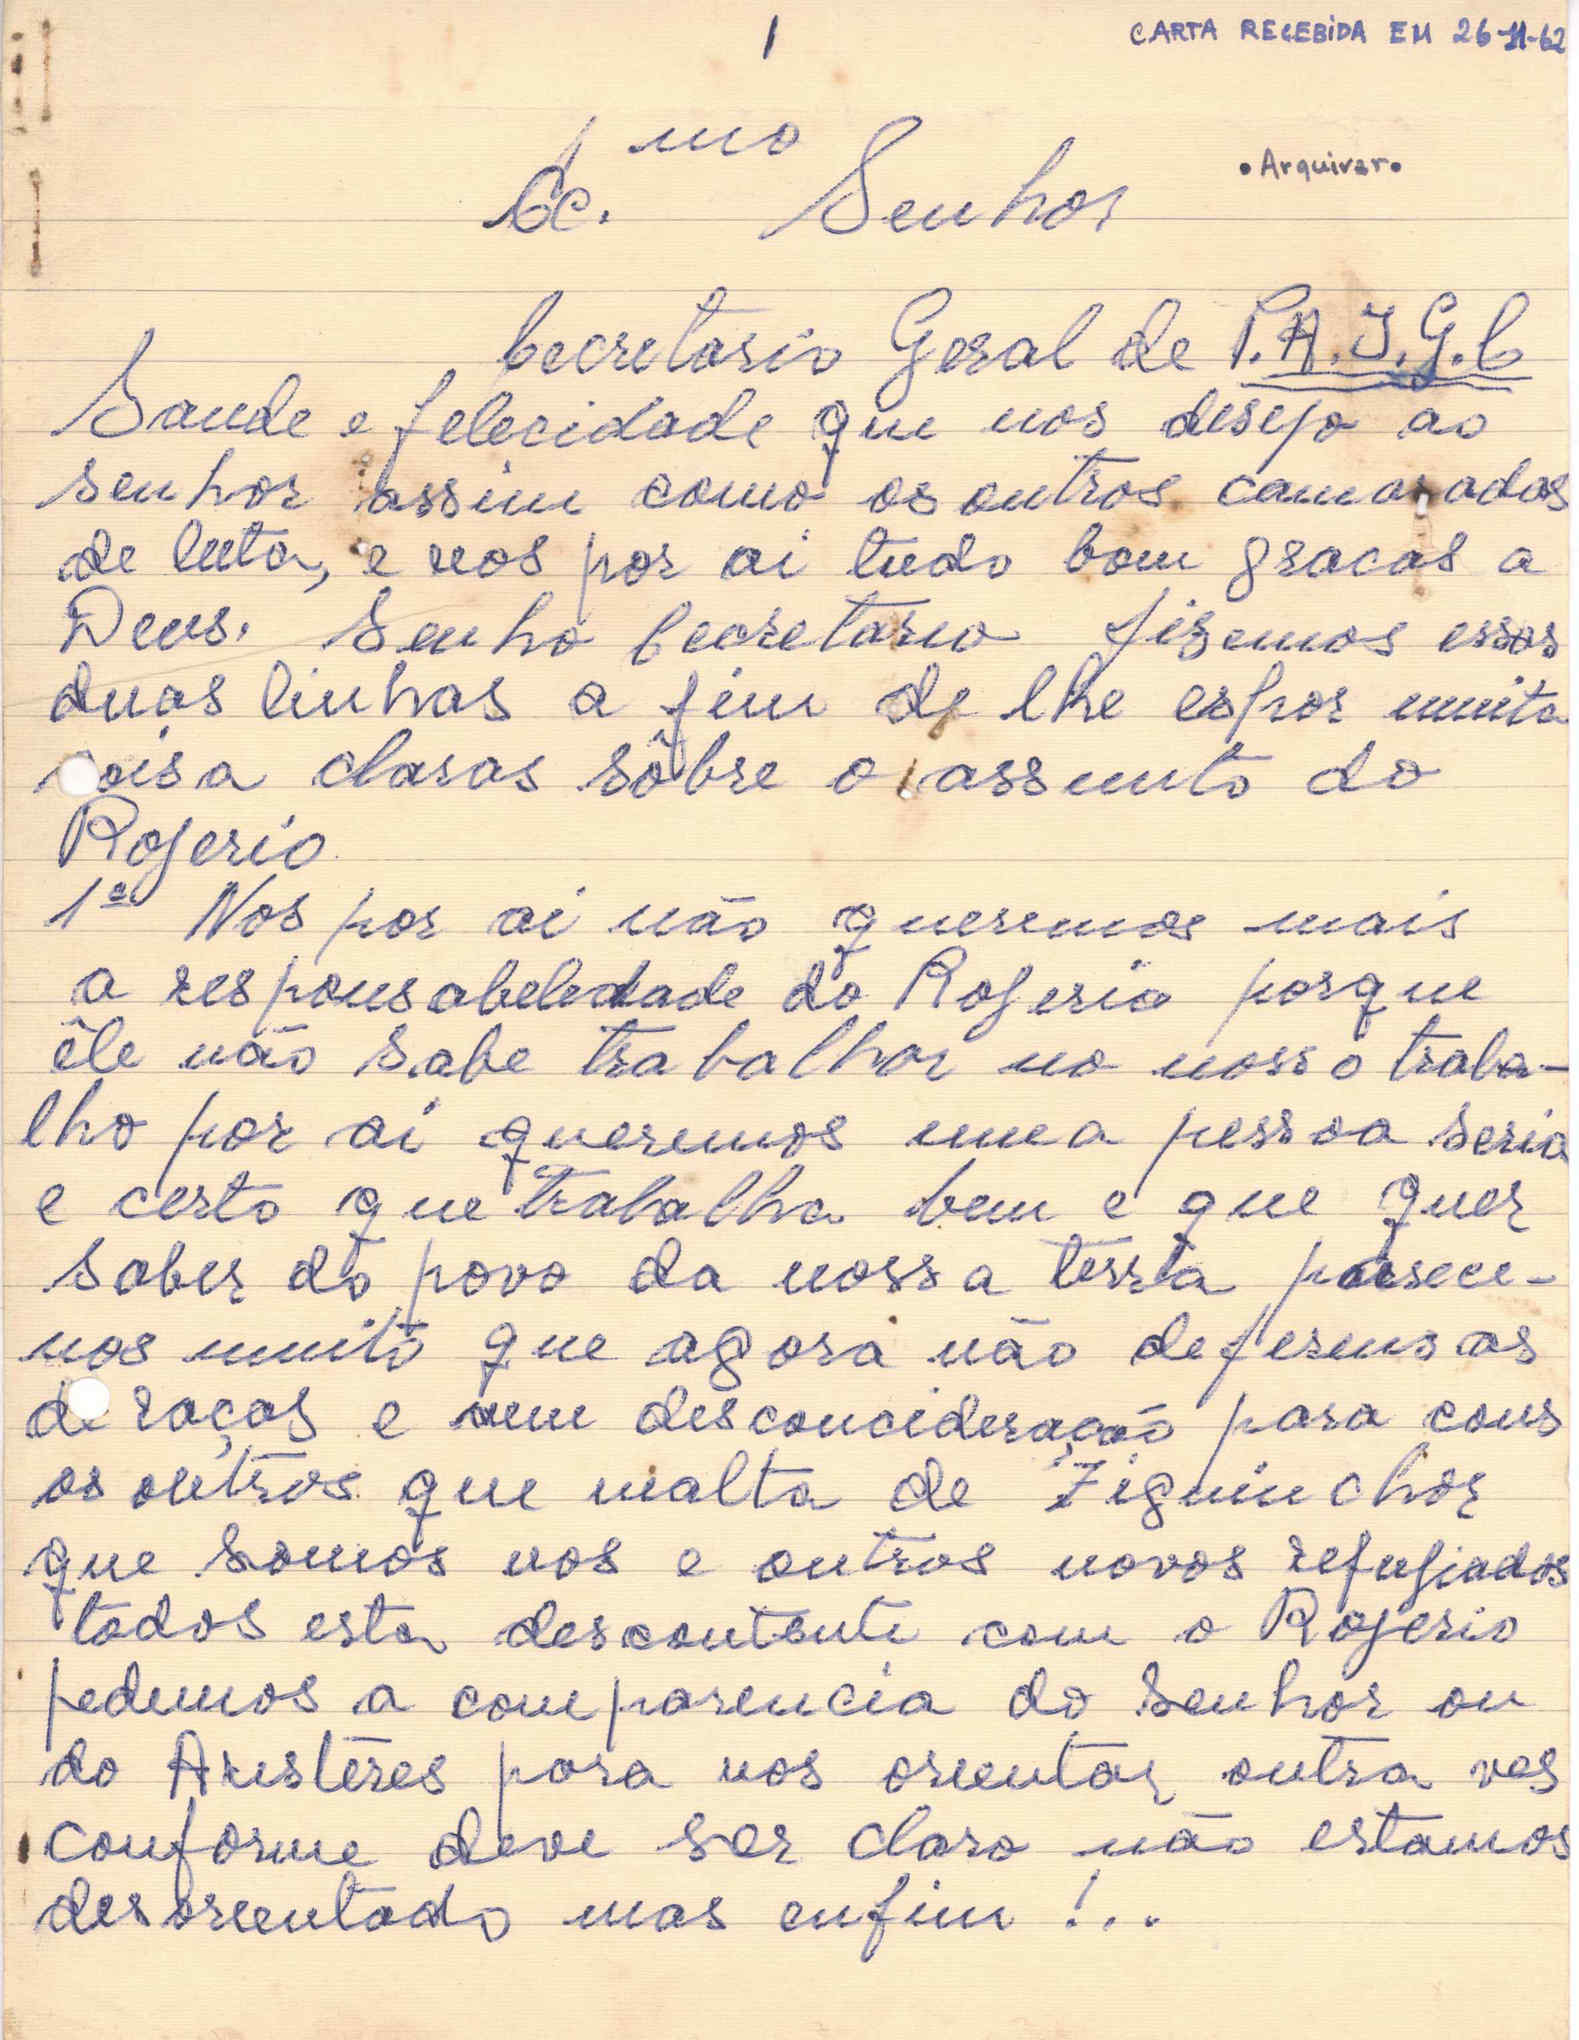 1
CARTA RECEBIDA EM 26-11-62
• Arquivar •
Ec.mo Senhor
Secretario Geral de P.A.I.G.C
Saude e felecidade que nos desejo ao
senhor assim como os outros camaradas
de luta, e nos por ai tudo bom gracas a
Deus. Senho Secretario fizemos essas
duas linhas a fim de lhe espor muita
coisa claras sôbre o assunto do
Rogerio
1º Nos por ai não queremos mais
a responsabeledade do Rogerio porque
êle não sabe trabalhar no nosso traba-
lho por ai queremos uma pessoa seria
e certo que trabalha bem e que quer
saber do povo da nossa terra parece-
nos muito que agora não deferensas
de raças e nem desconcideração para cons
os outros que malta de Ziguinchor
que somos nos e outros novos refugiados
todos esta descontente com o Rogerio
pedemos a comparencia do senhor ou
do Aristeres para nos orientar outra ves
conforme deve ser claro não estamos
desorientado mas enfim !..